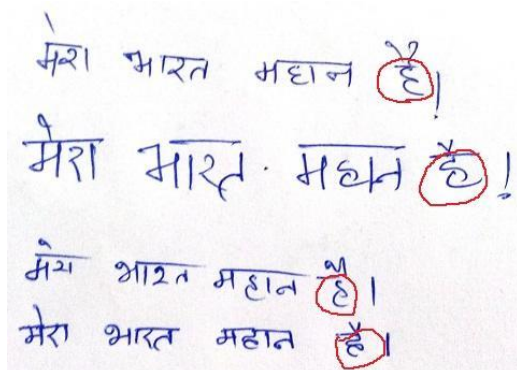 मेरा भारत महान है!
मेरा भारत महान है!
मेरा भारत महान है।
मेरा भारत महान है।